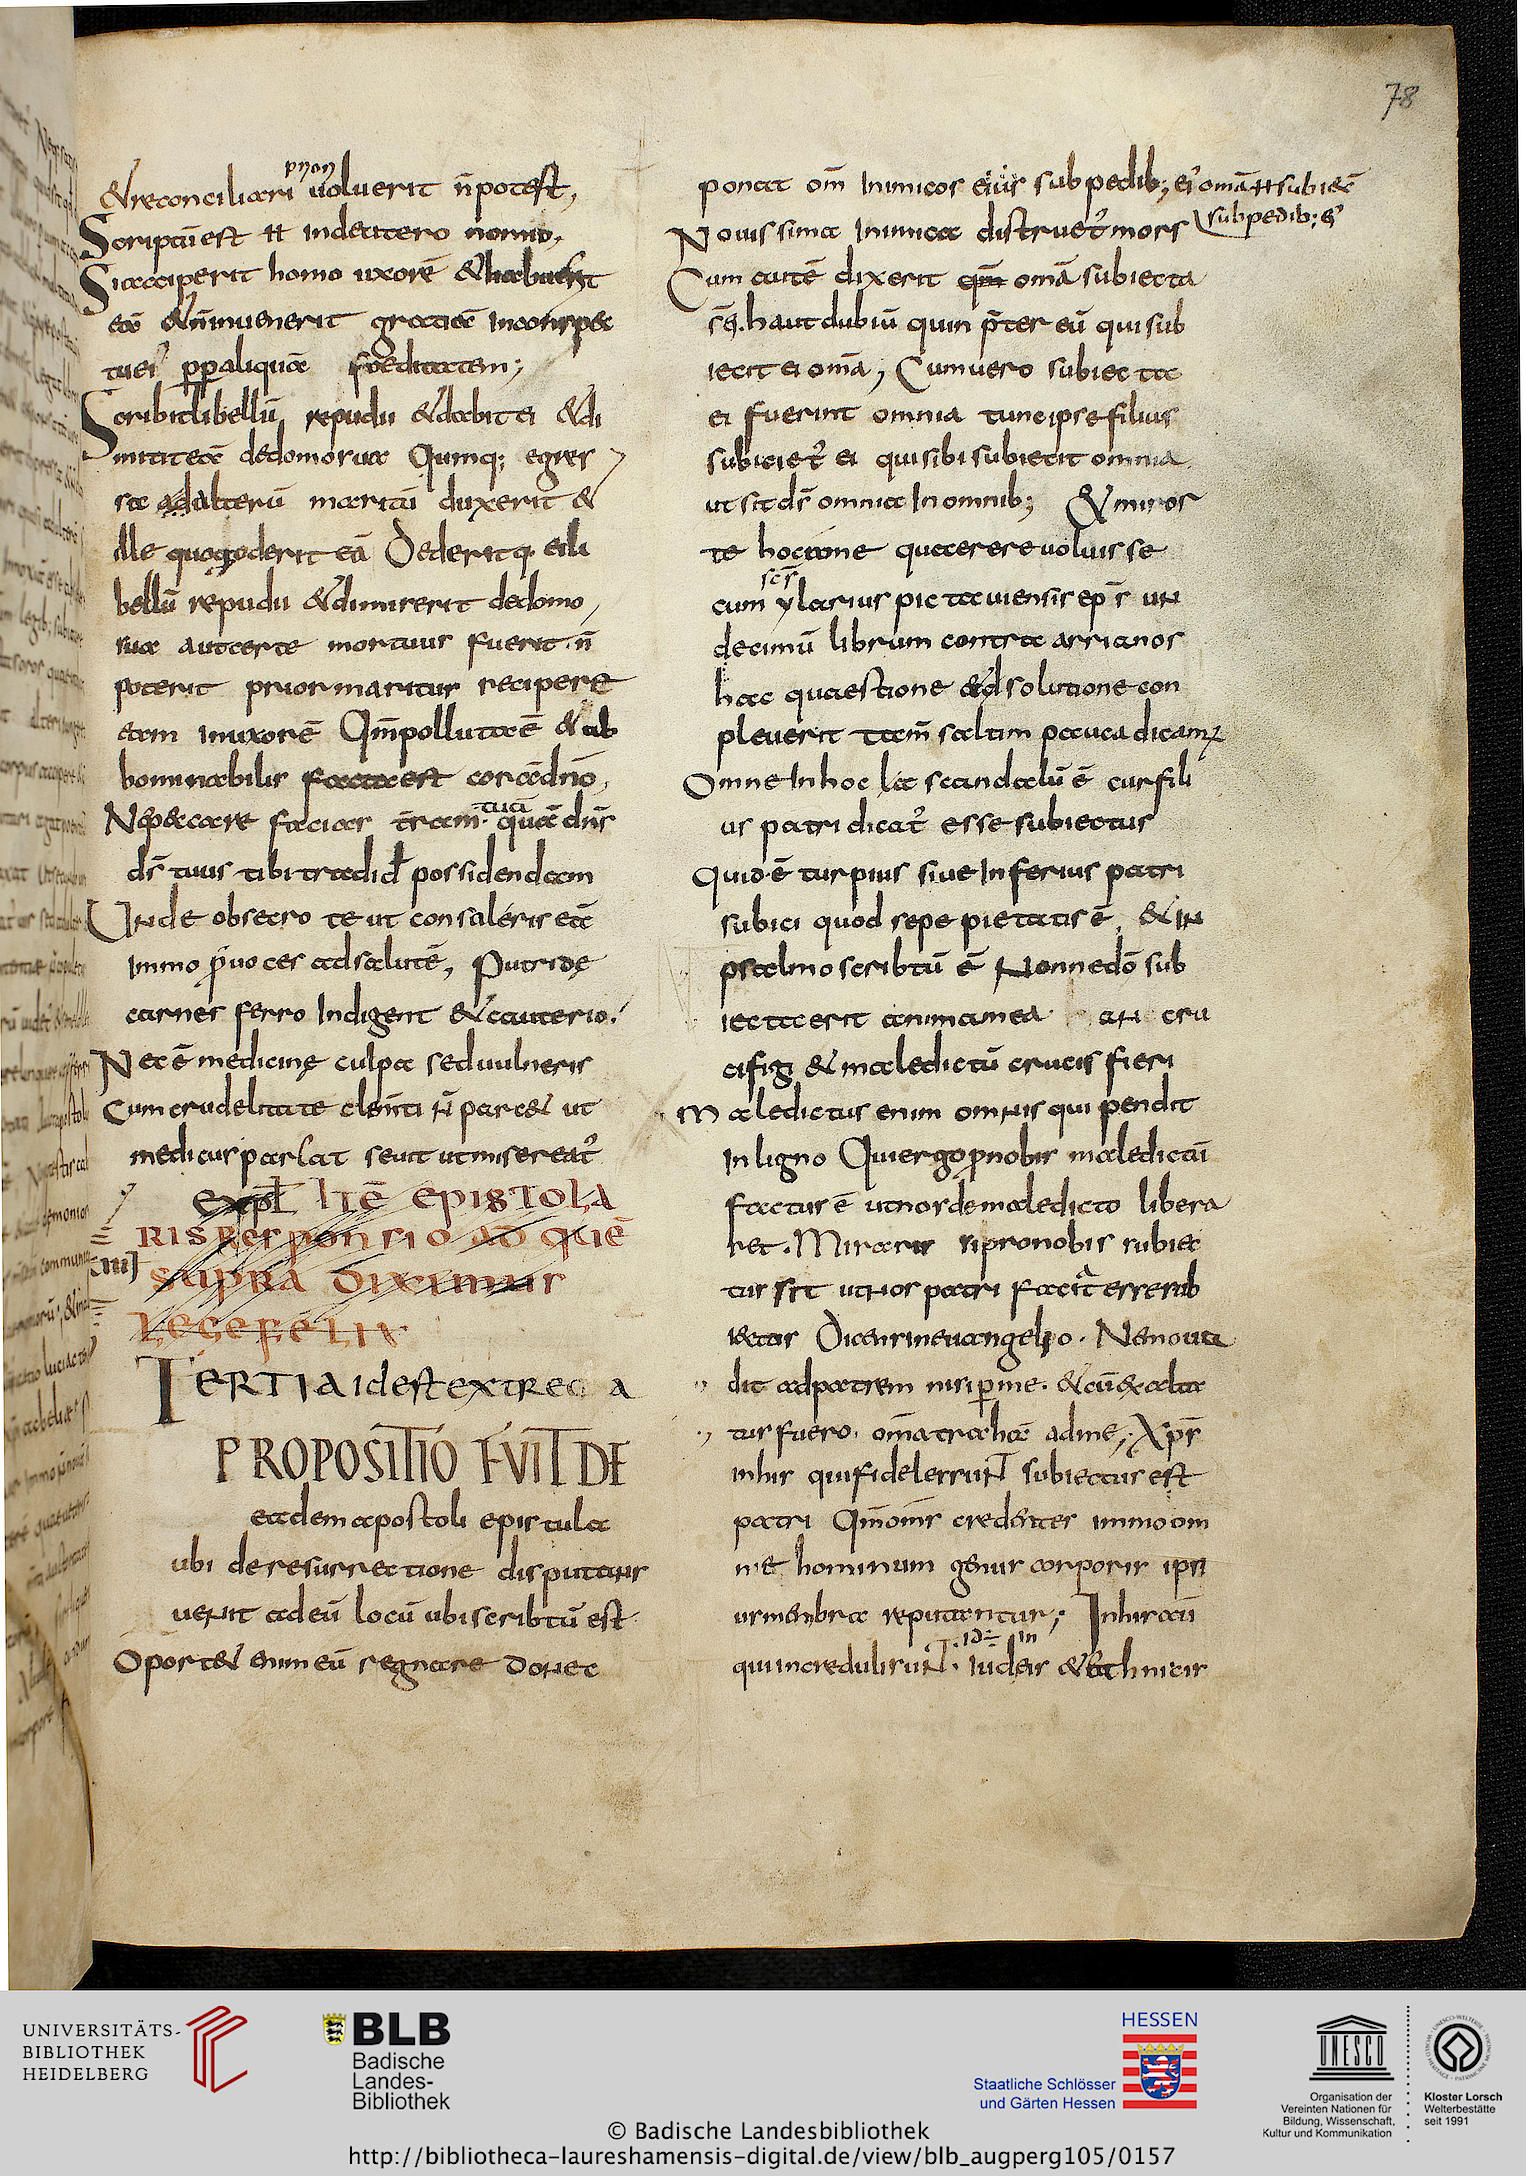 78
p̄ non
&reconciliari uoluerit n̄ potest,
Scriptū est ħ in deutero nomio,
Si acciperit homo uxorē & habuerit
eā & n̄ inuenerit gratiā in conspec
tu ei' pp aliquā foeditatem;
Scribit libellū repudii & dabit ei & di
mittit eā de domo sua Quinq; egres
sa ad alterū maritū duxerit &
ille quoq; oderit eā Dederitq. ei li
bellū repudii & dimiserit de domo,
sua aut certe mortuus fuerit. n̄
poterit prior maritus recipere
eam in uxorē Qm̄ polluta ē & ab
hominabilis facta est corā dn̄o,
tuā
Ne peccare facias tr̄am. quā dn̄s
ds̄ tuus tibi tradid possidendam
Unde obsecro te ut consuleris eā
Immo p̄uoces ad salutē, Putridę
carnes ferro Indigent & cauterio.
Nec ē medicinę culpa sed uulneris
Cum crudelitate clem̄ti n̄ parc& ut
medicus parcat seuit ut misereat'
expł Itē epistola
ris responsio ad quē
supra diximus
lege felix
IIII
TERTIA id est extrema
PROPOSITIO FVIT DE
eadem apostoli epistula
ubi de resurrectione disputans
uenit ad eū locū ubi scribtū est
Oport& enim eū regnare Donec
ponat om̄ Inimicos eius sub pedib; ei' omā ħ subiec
sub pedib; ei'
Nouissima Inimica distruet' mors
Cum autē dixerit qm̄ omā subiecta
s̄t ei. haut dubiū quin p̄ter eū qui sub
iecit ei omā, Cum uero subiecta
ei fuerint omnia tunc ipse filius
subiciet' ei qui sibi subiecit omnia
ut sit ds̄ omnia In omnib; & miror
te hoc a me quaerere uoluisse
sc̄s
cum ylarius pictauiensis ep̄s un
decimū librum contra arrianos
hac quaestione & solutione con
pleuerit tam̄ saltim pauca dicam;
Omne In hoc la scandalū ē cur fili
us patri dicat' esse subiectus
Quid ē turpius siue Inferius patri
subici quod sepe pietatis ē, & in
psalmo scribtū ē Nonne dō sub
iecta erit anima mea an cru
cifigi & maledictū crucis fieri
Maledictus enim omnis qui pendit
In ligno Qui ergo p̄ nobis maledictū
factus ē ut nos de maledicto libera
ret. Miraris si pro nobis subiec
tus sit ut nos patri faciat esse sub
iectos Dicens in euangelio. Nemo ua
dit ad patrem nisi p me. & cū exalta
tus fuero. omā traham ad me; Xps̄
in his qui fideles sunt subiectus est
patri Qm̄ om̄s credentes immo om
ne hominum genus corporis ipsi
us membra reputantur; In his autē
.id÷ in
qui increduli sunt. iudeis & &hnicis
UNIVERSITÄTS-
BIBLIOTHEK
HEIDELBERG
BLB
Badische
Landes-
Bibliothek
HESSEN
Staatliche Schlösser
und Gärten Hessen
UNESCO
Organisation der
Vereinten Nationen für
Bildung, Wissenschaft,
Kultur und Kommunikation
Kloster Lorsch
Welterbestätte
seit 1991
© Badische Landesbibliothek
http://bibliotheca-laureshamensis-digital.de/view/blb_augperg105/0157